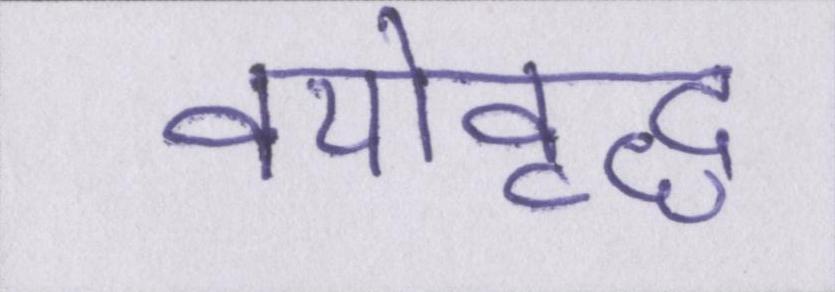 वयोवृद्ध